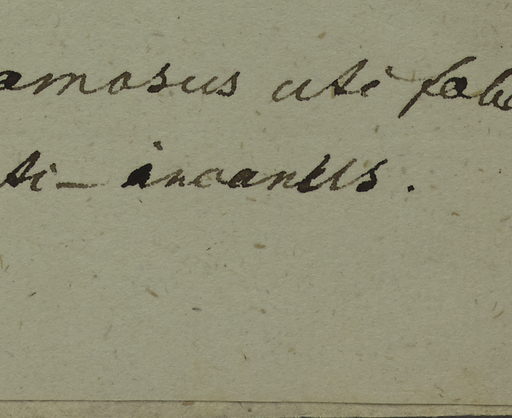 amosus uti fabe
ti- incanus.